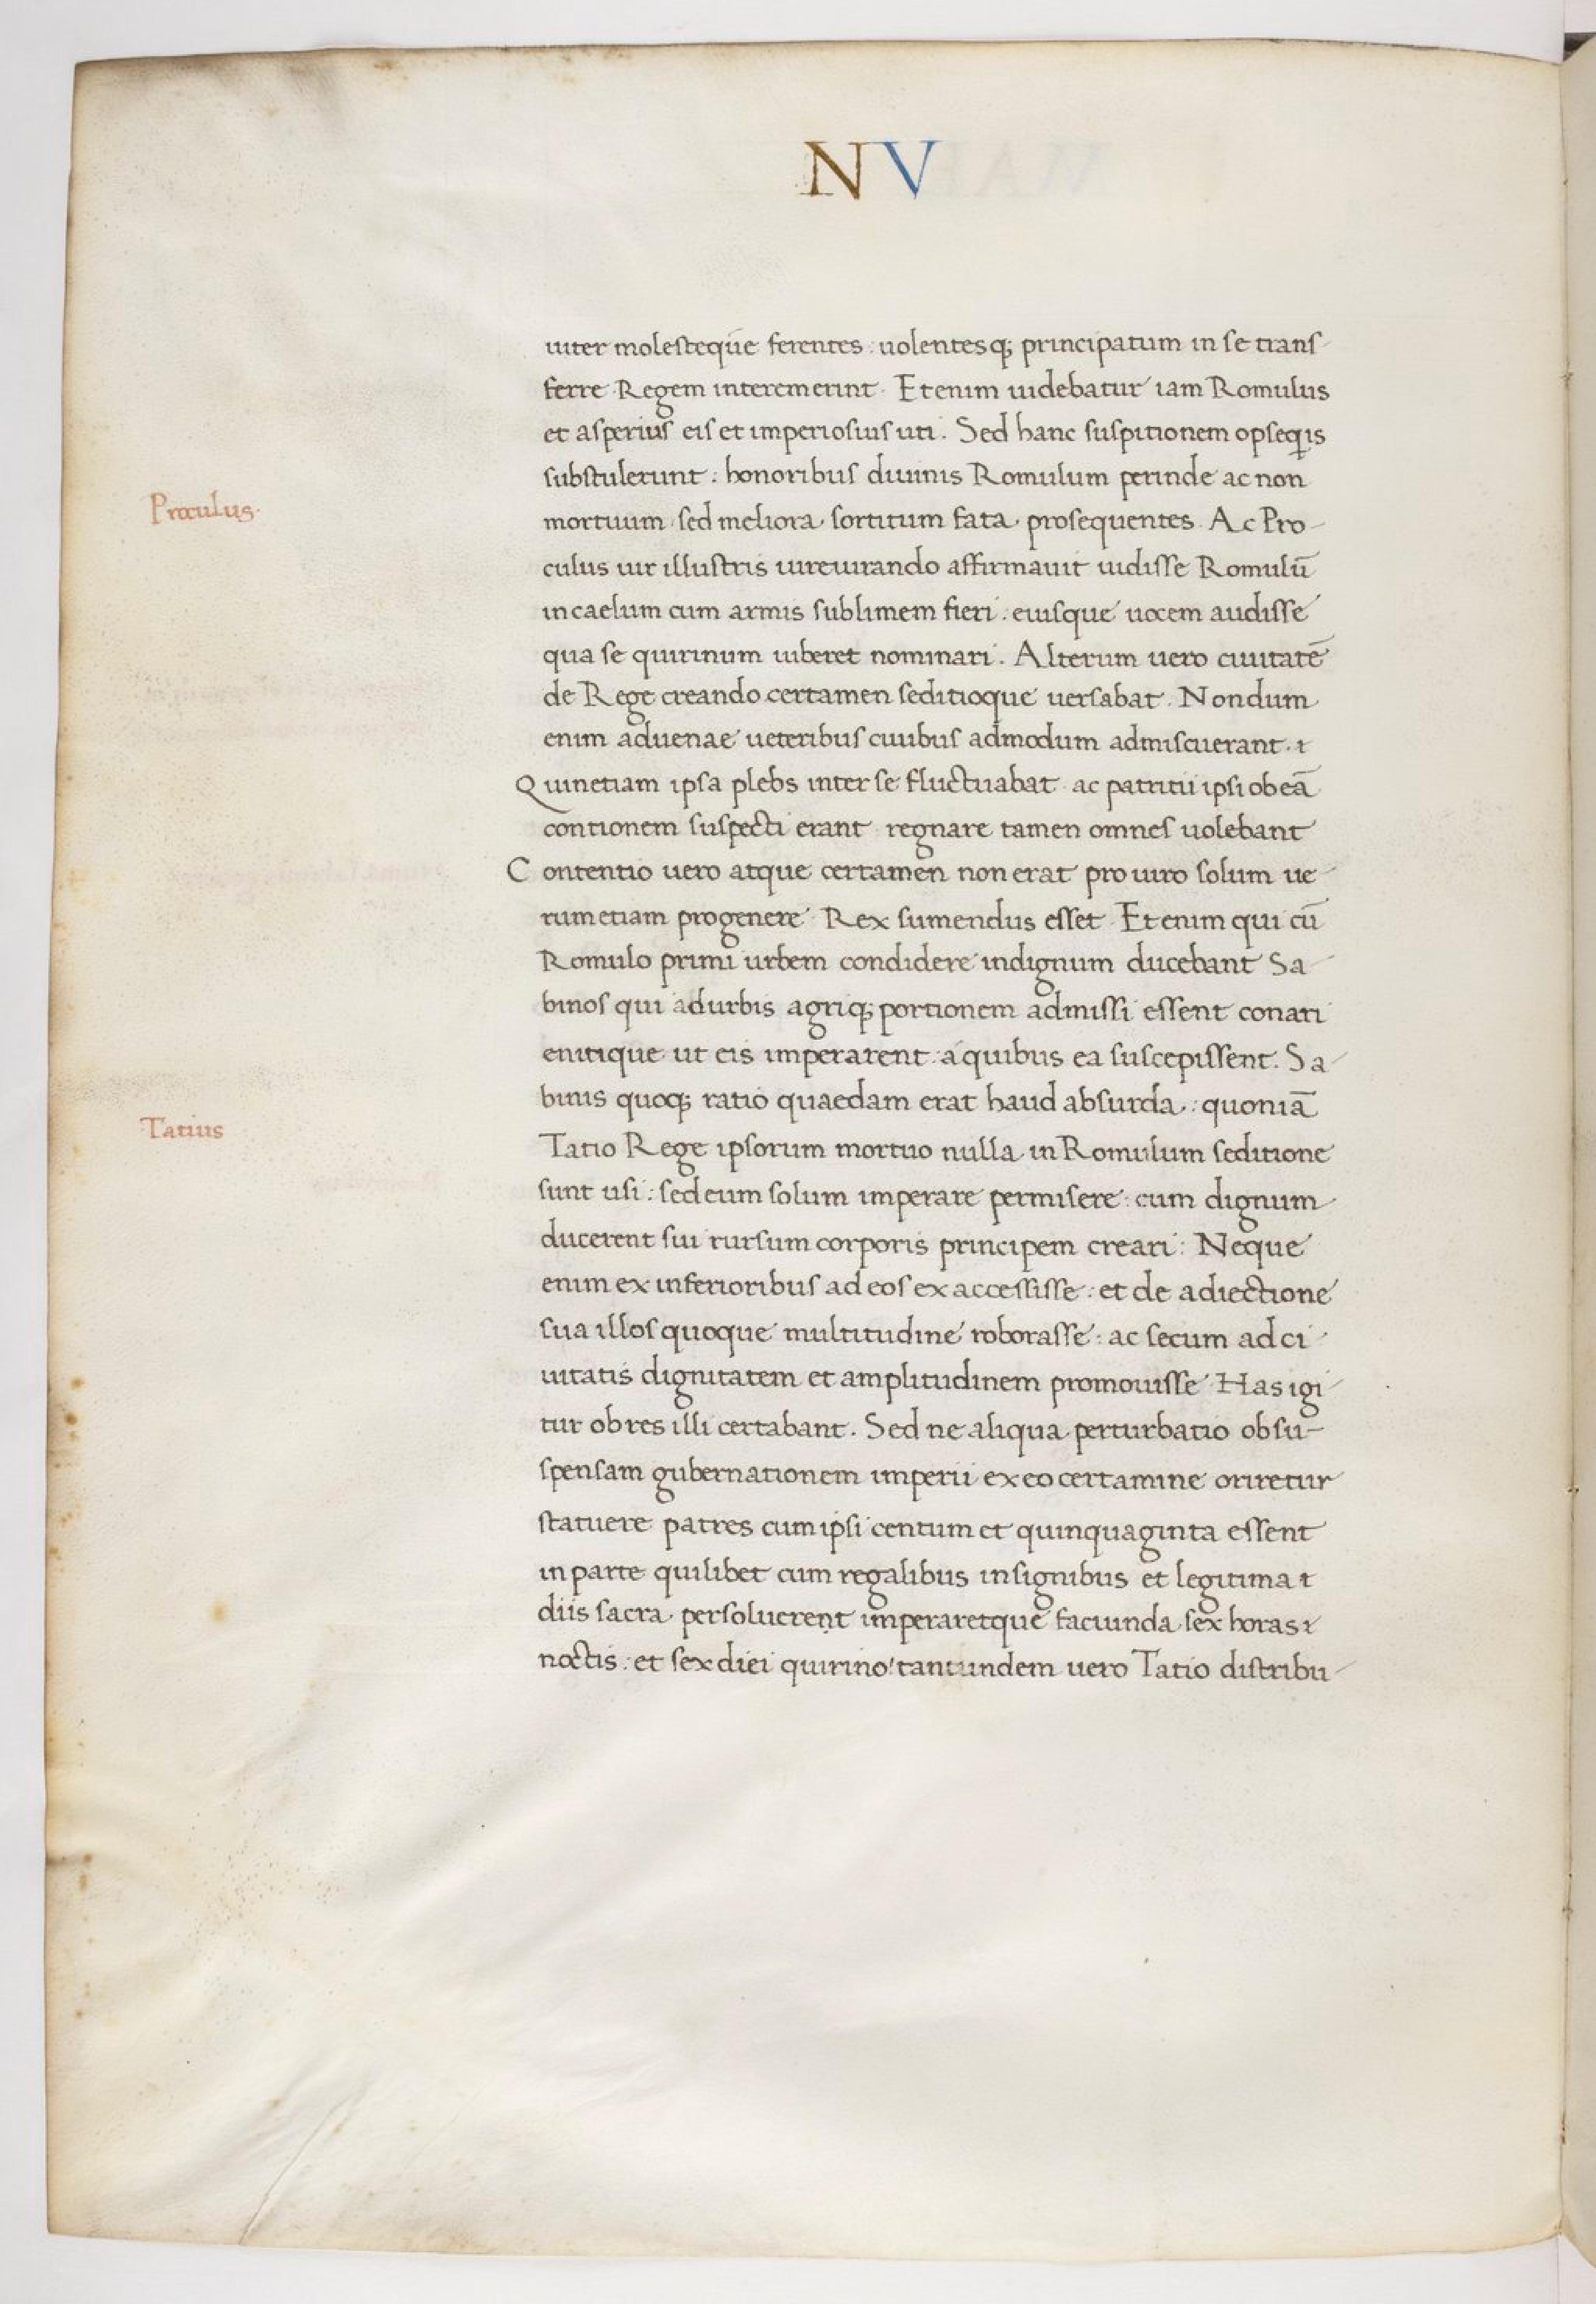 NV
uiter molesteque ferentes: uolentesq; principatum in se trans-
ferre Regem interemerint. Etenim uidebatur iam Romulus
et asperius eis et imperiosius uti. Sed hanc suspitionem opseqis
substulerunt: honoribus diuinis Romulum perinde ac non
Proculus.
mortuum sed meliora sortitum fata prosequentes. Ac Pro-
culus uir illustris iureiurando affirmauit uidisse Romulū
in caelum cum armis sublimem fieri: eiusque uocem audisse
qua se quirinum iuberet nominari. Alterum uero ciuitatē
de Rege creando certamen seditioque uersabat. Nondum
enim aduenae ueteribus ciuibus admodum admiscuerant.
Quinetiam ipsa plebs inter se fluctuabat ac patritii ipsi ob eā
contionem suspecti erant regnare tamen omnes uolebant
Contentio uero atque certamen non erat pro uiro solum ue-
rum etiam pro genere Rex sumendus esset. Etenim qui cū
Romulo primi urbem condidere indignum ducebant Sa-
binos qui ad urbis agriq; portionem admissi essent conari
enitique ut eis imperarent: a quibus ea suscepissent. Sa-
binis quoq; ratio quaedam erat haud absurda: quoniā
Tatius
Tatio Rege ipsorum mortuo nulla in Romulum seditione
sunt usi: sed eum solum imperare permisere: cum dignum
ducerent sui rursum corporis principem creari: Neque
enim ex inferioribus ad eos ex accessisse: et de adiectione
sua illos quoque multitudine roborasse: ac secum ad ci-
uitatis dignitatem et amplitudinem promouisse. Has igi-
tur ob res illi certabant. Sed ne aliqua perturbatio ob su-
spensam gubernationem imperii ex eo certamine oriretur
statuere patres cum ipsi centum et quinquaginta essent
in parte quilibet cum regalibus insignibus et legitima
diis sacra persolueret imperaretque faciunda sex horas
noctis: et sex diei quirino: tantundem uero Tatio distribu-